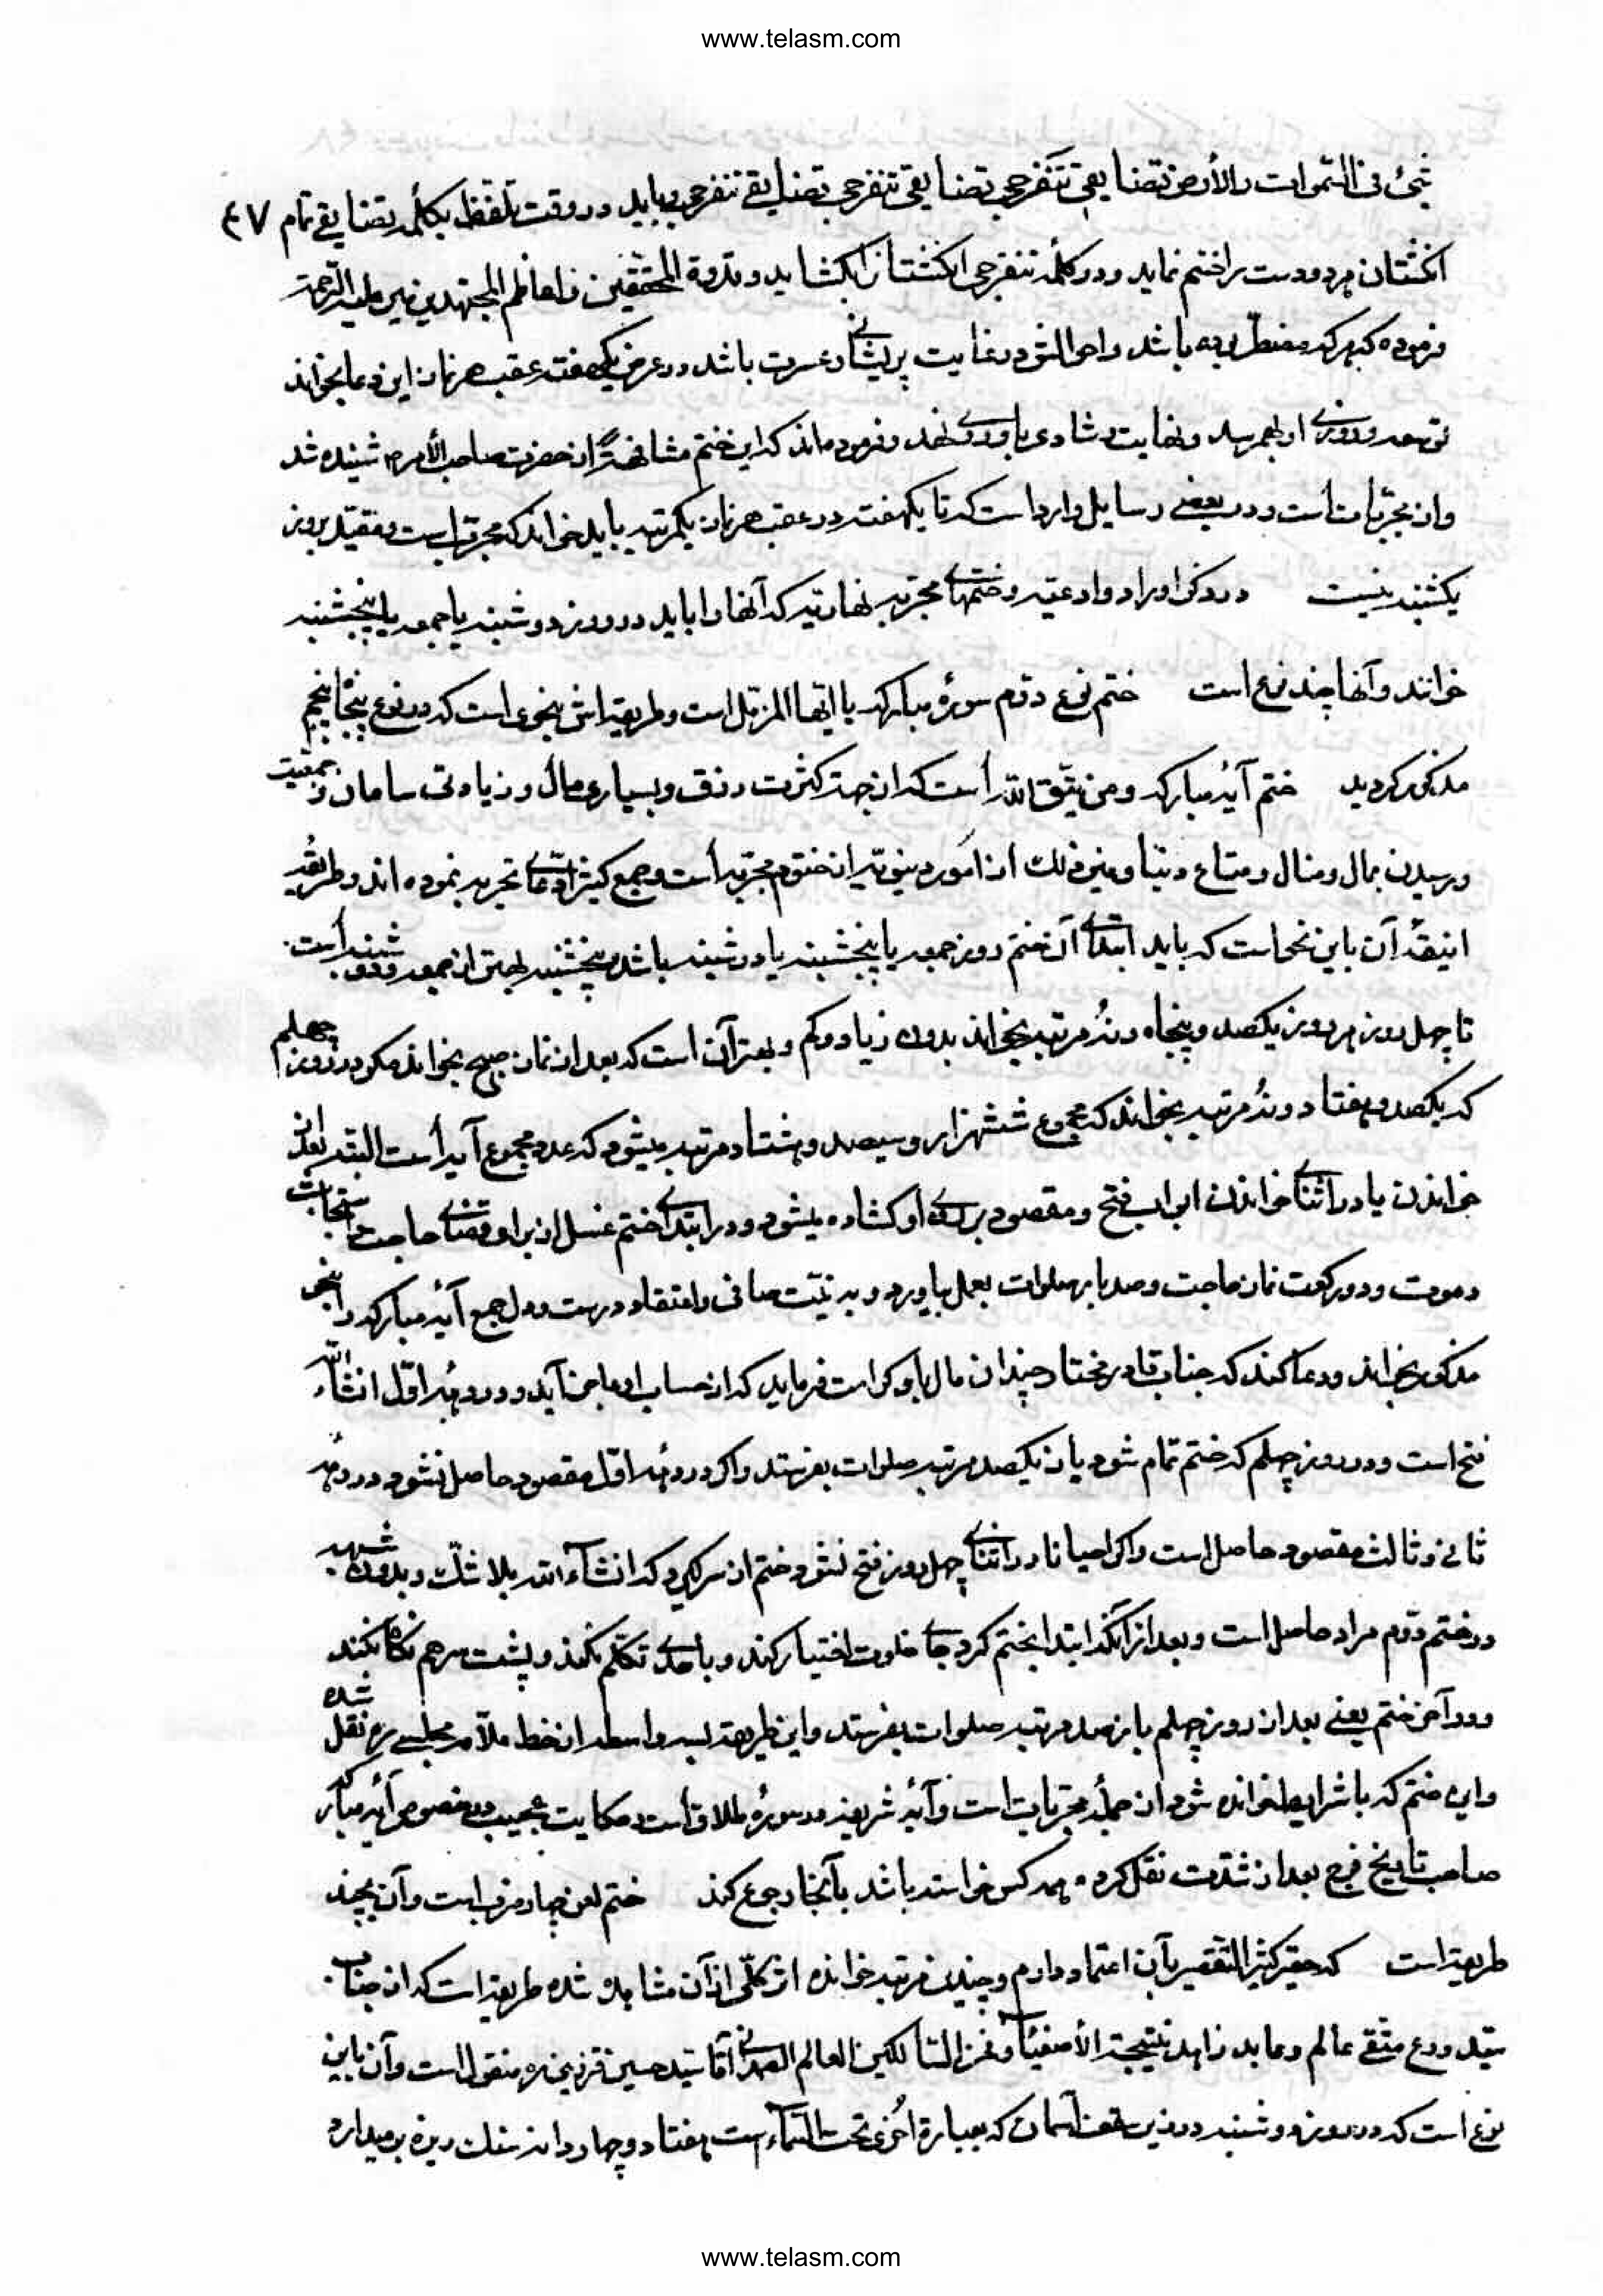 www.telasm.com
شئ فی السموات والأرض تضایقی تتفرجی تضایقی تتفرجی تضایقی تتفرجی و باید در وقت تلفظ بکلمه تضایقی تمام ۴۷
انگشتان هر دو دست را ختم نماید و در کلمه تتفرجی انگشتانرا بکشاید و قدوة المحققین و اعاظم المجتهدین علیه الرحمة
فرموده که هر که مضطر بوده باشد و احوالش در غایت پریشانی و عسرت باشد در عرض یکهفته عقب هر نماز این دعا بخواند
توسعه و روزی او بهم رسد و نهایت شادی باو روی دهد و فرموده‌اند که این ختم مشافهةً از حضرت صاحب الأمر ع شنیده شد
و از مجربات است و در بعضی رسایل وارد است که تا یکهفته در عقب هر نماز یکمرتبه باید خواند که مجرب است و مقید بروز
یکشنبه نیست در ذکر اوراد و ادعیه و ختمهای مجربه نهاریه که آنها را باید در روز دوشنبه یا جمعه یا پنجشنبه
خوانند و آنها چند نوع است ختم نوع دوم سورهٔ مبارکه یا ایها المزمل است و طریقه‌اش بنحوی است که در نوع پنجاه پنجم
مذکور گردید ختم آیهٔ مبارکه ومن یتق الله است که از جهة کثرت رزق و بسیاری مال و زیادتی سامان و جمعیت
و رسیدن بمال و منال و متاع دنیا و غیر ذلک از امور دنیویه از ختوم مجربه است و جمع کثیر ادعای تجربه نموده‌اند و طریقه
انیقهٔ آن باین نحو است که باید ابتدای آن ختم روز جمعه یا پنجشنبه یا دوشنبه باشد پنجشنبه بهتر از جمعه و دوشنبه است
تا چهل روز هر روز یکصد و پنجاه و نه مرتبه بخواند بدون زیاد و کم و بهتر آن است که بعد از نماز صبح بخواند مگر در روز چهلم
که یکصد و هفتاد و نه مرتبه بخواند که مجموع ششهزار و سیصد و هشتاد مرتبه میشود که عدد مجموع آیه است البته بعد از
خواندن یا در اثنای خواندن ابواب فتح و مقصود بر روی او کشاده میشود و در ابتدای ختم غسل از برای قضای حاجت و استجابت
دعوت و دو رکعت نماز حاجت و صد بار صلوات بعمل بیاورد و به نیت صافی و اعتقاد درست و دل جمع آیهٔ مبارکه را بنحو
مذکور بخواند و دعا کند که جناب قادر مختار چندان مال باو کرامت فرماید که از حساب او عاجز آید و در دورهٔ اول انشاء الله
فتح است و در روز چهلم که ختم تمام شود باز یکصد مرتبه صلوات بفرستد و اگر در دورهٔ اول مقصود حاصل نشود در دورهٔ
ثانی و ثالث مقصود حاصل است و اگر احیانا در اثنای چهل روز فتح نشود ختم از سر گیرد که انشاء الله بلا شک و بدون شبهه
در ختم دوم مراد حاصل است و بعد از آنکه ابتدا بختم کرد جای خلوت اختیار کند و با احدی تکلم نکند و پشت سر هم نگاه نکند
و در آخر ختم یعنی بعد از روز چهلم پانصد مرتبه صلوات بفرستد و این طریقه بسه واسطه از خط ملا محمد مجلسی ره نقل شده
و این ختم که با شرایط خوانده شود از جملهٔ مجربات است و آیهٔ شریفه در سورهٔ طلاق است و حکایت عجیب در خصوص آیه مبارکه
صاحب تاریخ فرج بعد از شدت نقل کرده هر کس خواسته باشد بآنجا رجوع کند ختم لعن چهار ضرب است و آن بچند
طریقه است که حقیر کثیر التقصیر بآن اعتماد دارم و چندین مرتبه خوانده اثر کلی از آن مشاهده شده طریقه است که از جناب
سید ورع متقی عالم و عابد زاهد نتیجة الأصفیاء و فخر السالکین العالم الصمدانی آقا سید حسین قزوینی ره منقول است و آن باین
نوع است که در روز دوشنبه در زیر سقف آسمان که بعبارة اخری تحت السماء است هفتاد و چهار دانه سنک ریزه برمیدارد
www.telasm.com